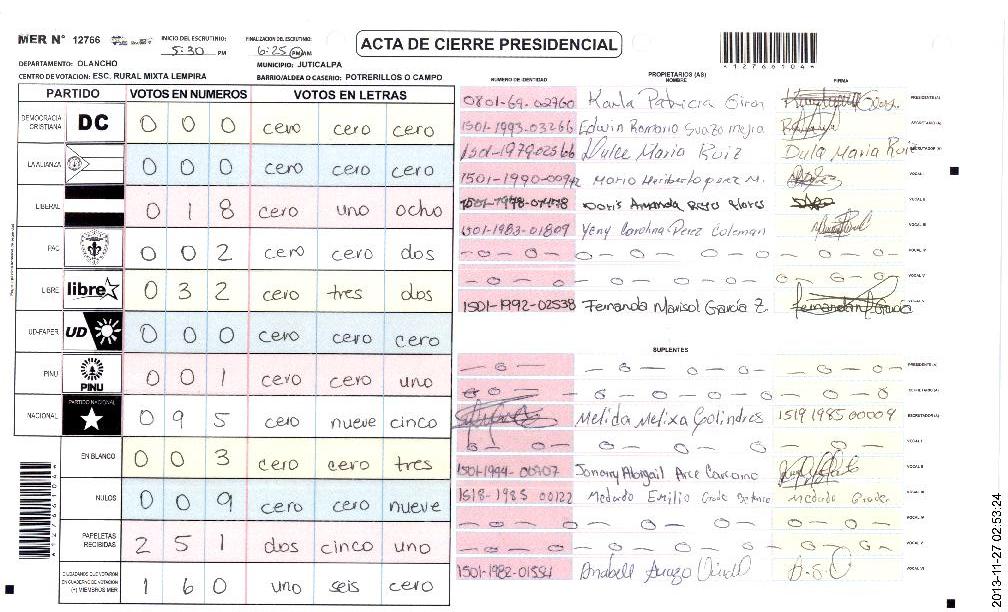 MER N° 12766
INICIO DEL ESCRUTINIO: 5:30 PM
FINALIZACION DEL ESCRUTINIO: 6:25 PM AM
ACTA DE CIERRE PRESIDENCIAL
*12766104*
DEPARTAMENTO: OLANCHO
MUNICIPIO: JUTICALPA
CENTRO DE VOTACION: ESC. RURAL MIXTA LEMPIRA
BARRIO/ALDEA O CASERIO: POTRERILLOS O CAMPO
PARTIDO VOTOS EN NUMEROS VOTOS EN LETRAS
DEMOCRACIA CRISTIANA DC 0 0 0 cero cero cero
LA ALIANZA 0 0 0 cero cero cero
LIBERAL 0 1 8 cero uno ocho
PAC 0 0 2 cero cero dos
LIBRE libre 0 3 2 cero tres dos
UD-FAPER UD 0 0 0 cero cero cero
PINU PINU 0 0 1 cero cero uno
NACIONAL PARTIDO NACIONAL 0 9 5 cero nueve cinco
EN BLANCO 0 0 3 cero cero tres
NULOS 0 0 9 cero cero nueve
PAPELETAS RECIBIDAS 2 5 1 dos cinco uno
CIUDADANOS QUE VOTARON
EN CUADERNO DE VOTACION
(+) MIEMBROS MER 1 6 0 uno seis cero
NUMERO DE IDENTIDAD PROPIETARIOS (AS) NOMBRE FIRMA
0801-69-02760 Karla Patricia Giron PRESIDENTE(A)
1501-1993-03266 Edwin Romario Suazo Mejia SECRETARIO(A)
1501-1979-02566 Dulce Maria Ruiz Dulce Maria Ruiz ESCRUTADOR(A)
1501-1990-00942 Mario Heriberto perez M. VOCAL I
1501-1978-01478 Doris Amanda Reyes Flores VOCAL II
1501-1983-01809 Yeny Carolina Perez Coleman VOCAL III
VOCAL IV
VOCAL V
1501-1992-02538 Fernanda Marisol García Z. Fernanda García
SUPLENTES
PRESIDENTE (A)
SECRETARIO(A)
Melida Melixa Colindres 1519 1985 00009 ESCRUTADOR(A)
VOCAL I
1501-1994-00907 VOCAL II
1518-1985 00122 Medardo Emilio VOCAL III
VOCAL IV
VOCAL V
1501-1982-01554 VOCAL VI
2013-11-27 02:53:24